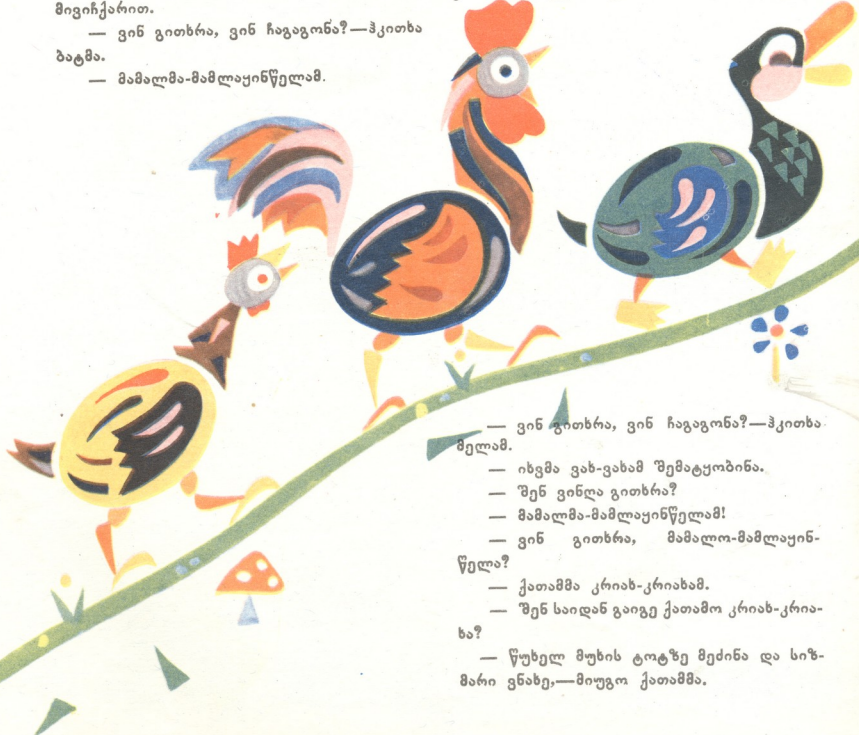 მივიჩქარით.
— ვინ გითხრა, ვინ ჩაგაგონა?—ჰკითხა
ბატმა.
— მამალმა-მამლაყინწელამ.
— ვინ გითხრა, ვინ ჩაგაგონა?—ჰკითხა
მელამ.
— იხვმა ვახ-ვახამ შემატყობინა.
— შენ ვინღა გითხრა?
— მამალმა-მამლაყინწელამ!
— ვინ გითხრა, მამალო-მამლაყინ-
წელა?
— ქათამმა კრიახ-კრიახამ.
— შენ საიდან გაიგე ქათამო კრიახ-კრია-
ხა?
— წუხელ მუხის ტოტზე მეძინა და სიზ-
მარი ვნახე,—მიუგო ქათამმა.